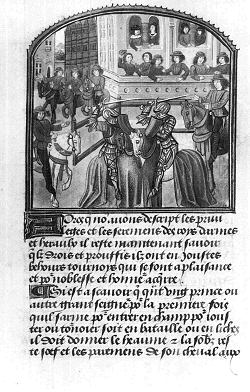 Dres q̃ nọ avions descript les privi
leges et les sermens des roys darmes
et heraulx il reste maintenant savoir
q̃lz drois et prouffis ilz ont en joustes
behours tournoys qui se font a plaisance
et pọ noblesse et honne acquire
Cy est a scavoir q̃ ung prince ou
autre grant seigne pọ la premiere fois
quil sarme pọ entrer en champ pọ jous
ter ou tonoier soit en bataille ou en liche
il doit donner le heaume & la
et les paremens de son cheval aux